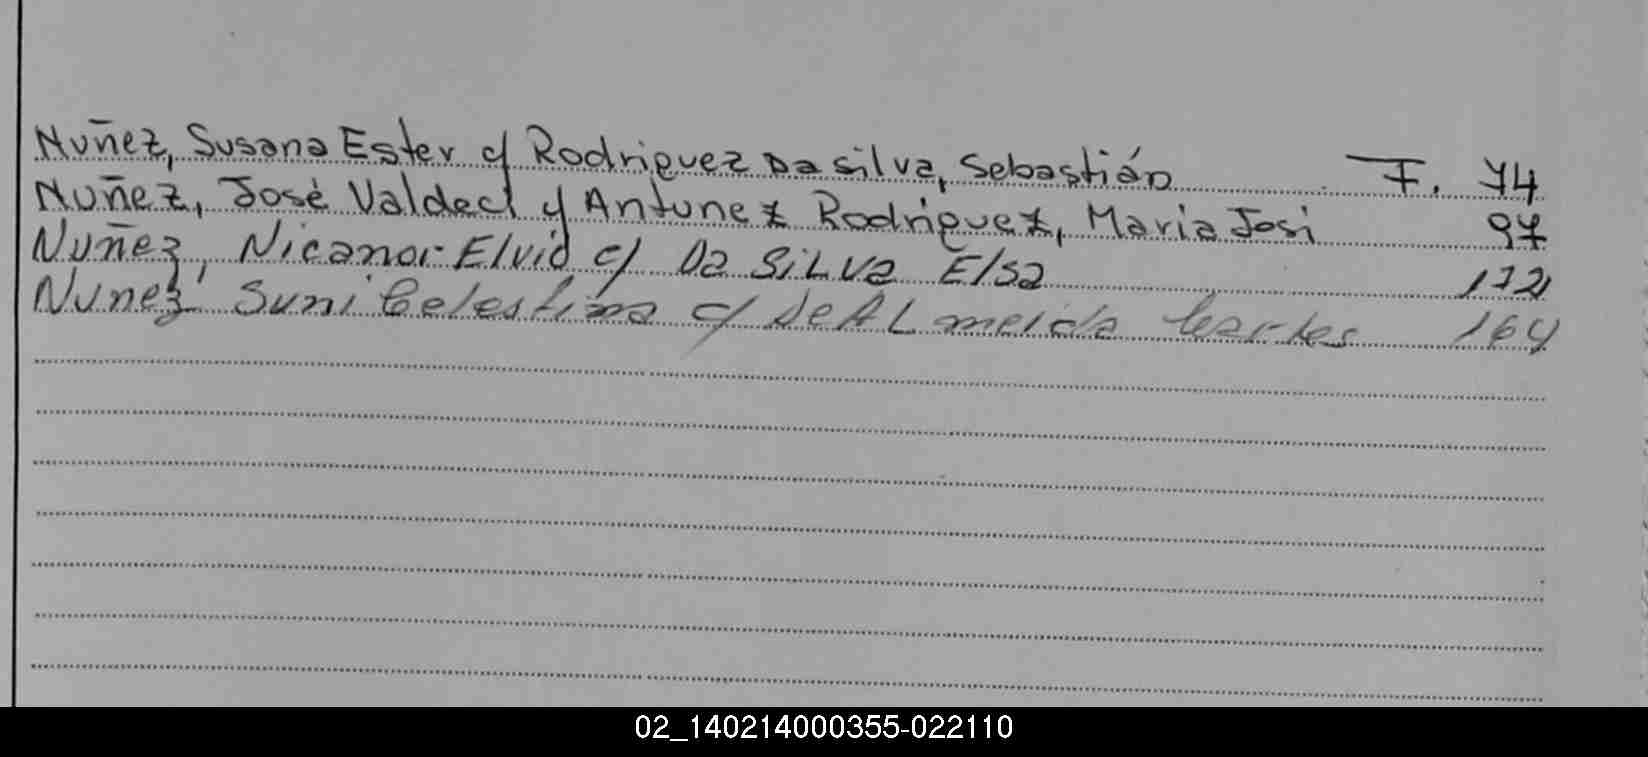 Nuñez, Susana Ester c/ Rodriguez Da silva, Sebastián F. 74
Nuñez, José Valdecl y Antunez Rodriguez, Maria Josi 97
Nuñez, Nicanor Elvio c/ Da SiLva Elsa 172
Nunez Suni Celestina c/ De ALmeida 164
02_140214000355-022110